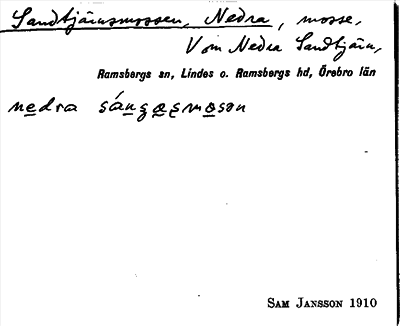 Sandtjärnsmossen, Nedra, mosse,
V om Nedra Sandtjärn,
Ramsbergs sn, Lindes o. Ramsbergs hd, Örebro län
nedra
SAM JANSSON 1910